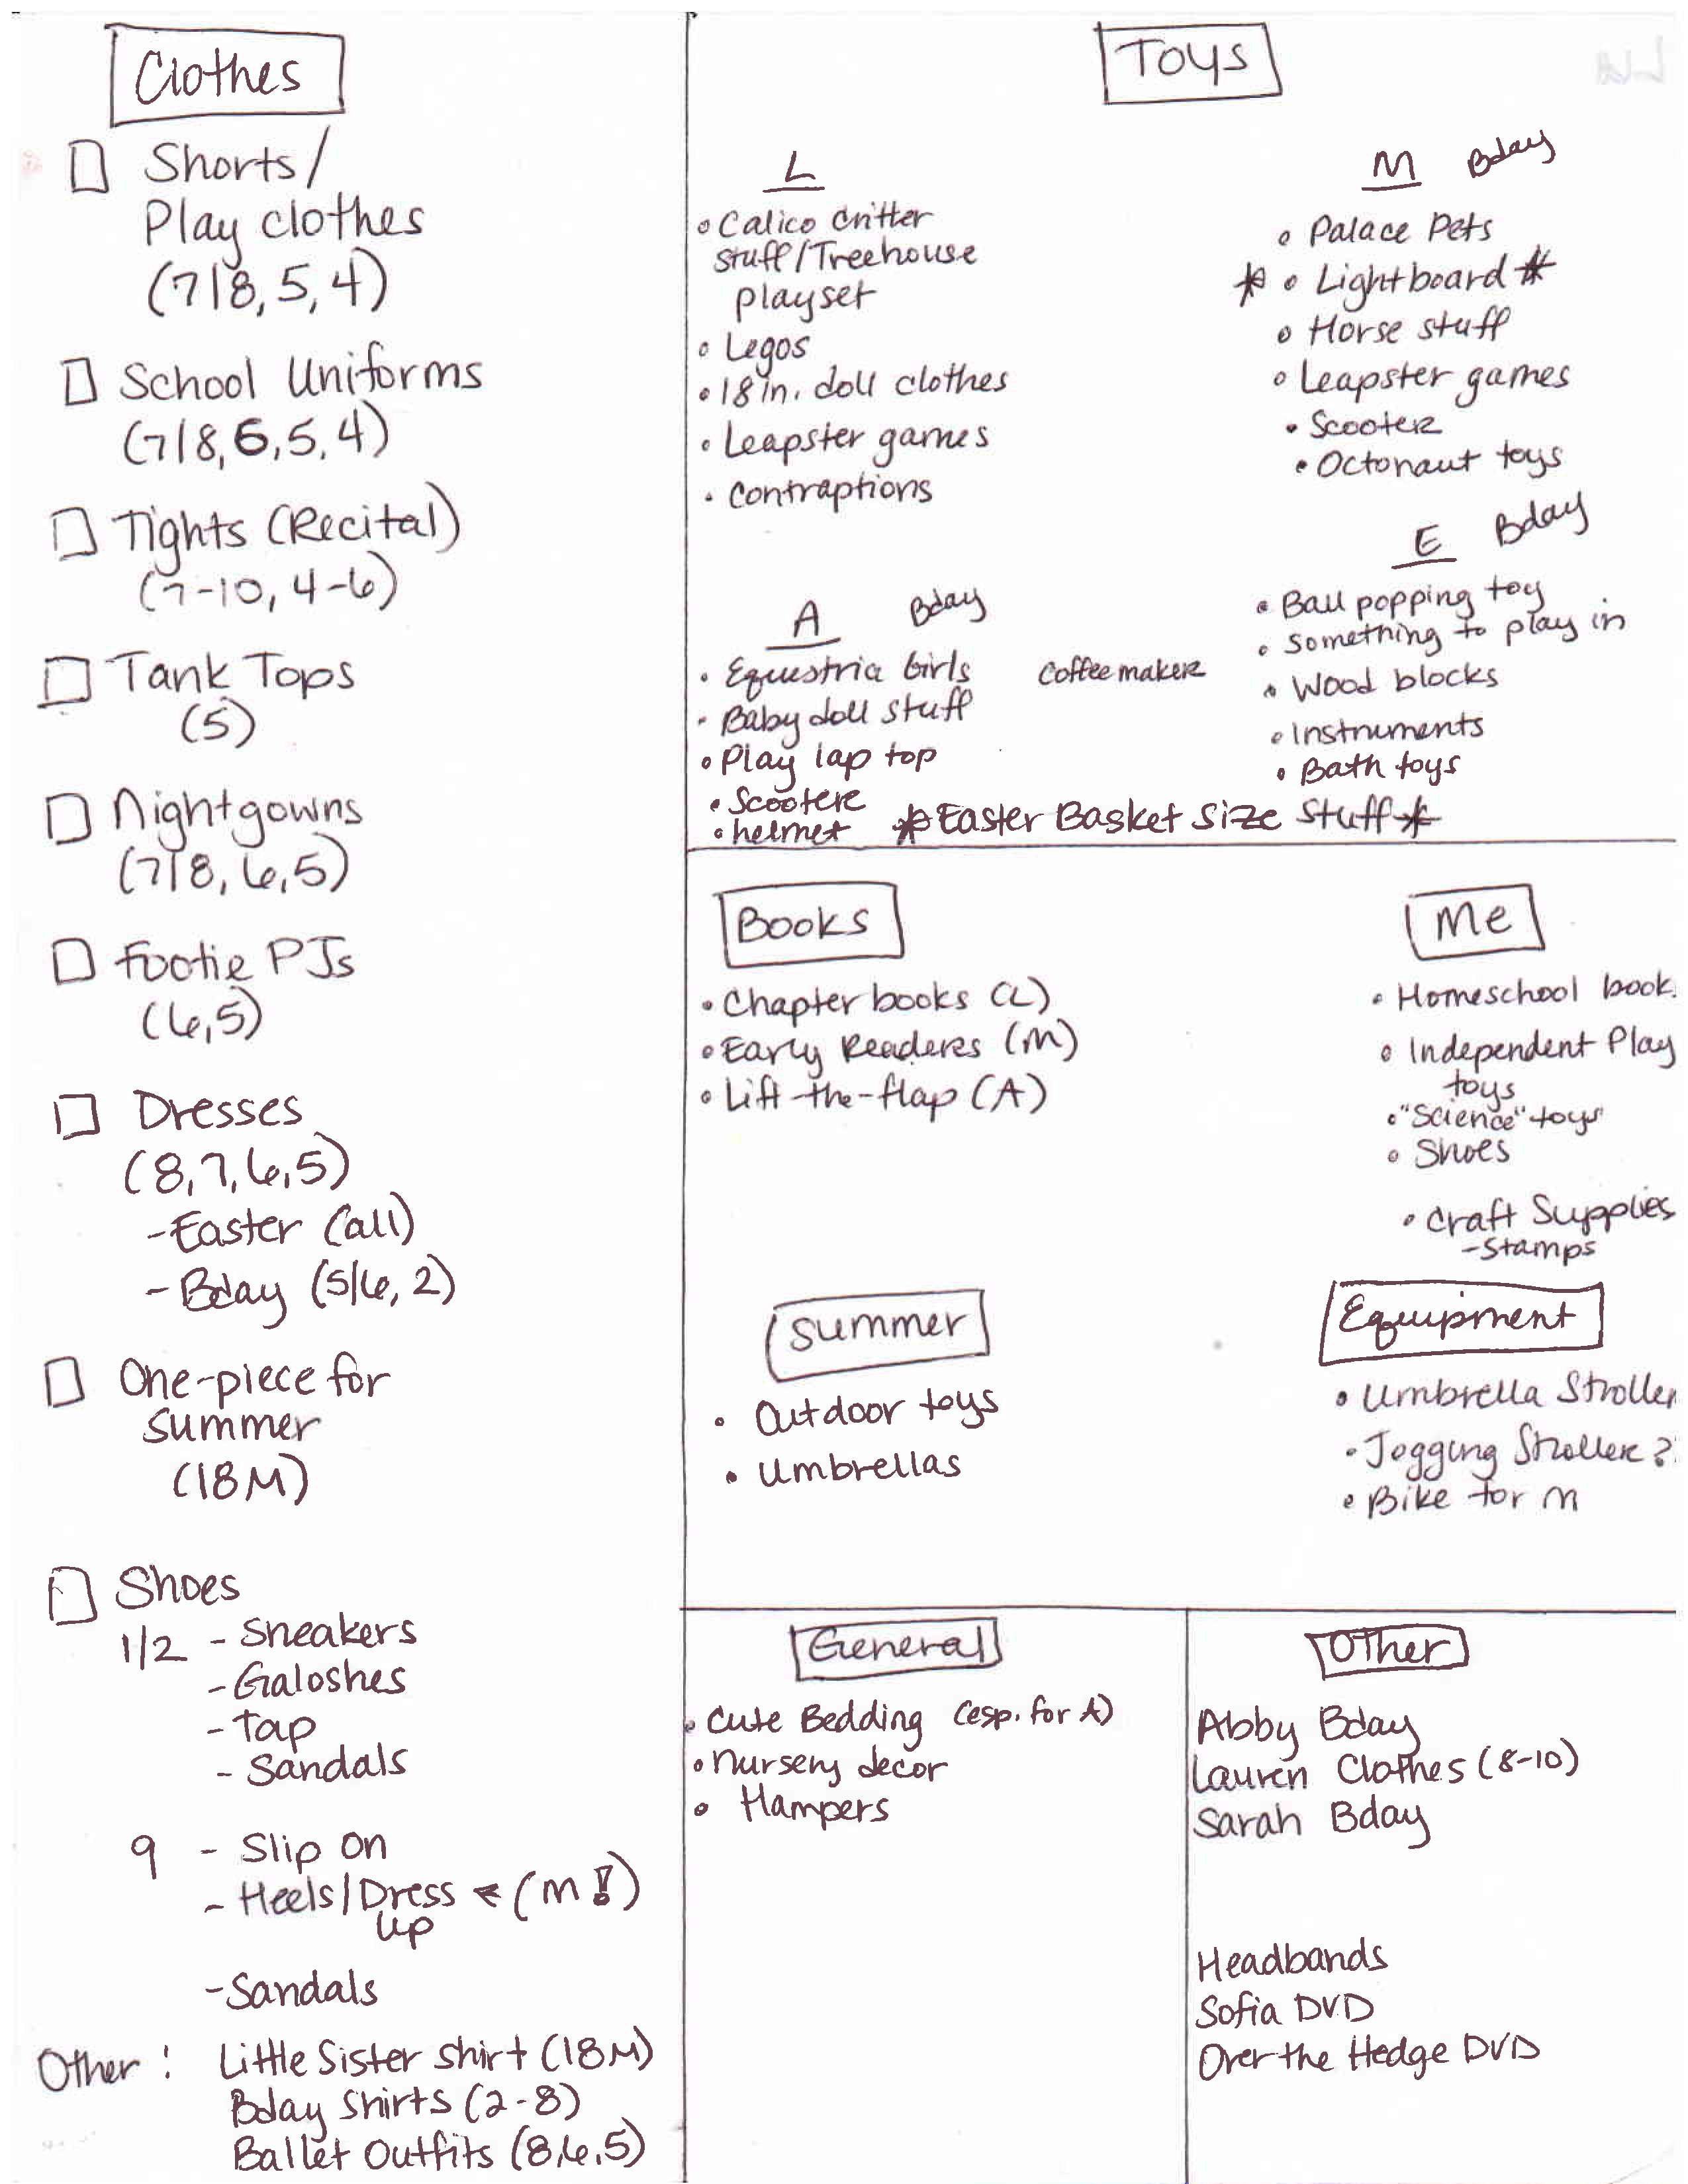 Clothes
Shorts/
Play clothes
(7/8, 5, 4)
School Uniforms
(7/8, 6, 5, 4)
Tights (Recital)
(7-10, 4-6)
Tank Tops
(5)
Nightgowns
(7/8, 6, 5)
Footie PJs
(6, 5)
Dresses
(8, 7, 6, 5)
- Easter (all)
- Bday (5/6, 2)
One-piece for
summer
(18M)
Shoes
1/2 - Sneakers
- Galoshes
- Tap
- Sandals
9 - Slip on
- Heels/Dress ← (M!)
up
- Sandals
Other: Little Sister shirt (18M)
Bday shirts (2-8)
Ballet Outfits (8, 6, 5)
Toys
L
• Calico Critter
stuff/Treehouse
playset
• Legos
• 18 in. doll clothes
• Leapster games
• Contraptions
M Bday
• Palace Pets
* • Lightboard *
• Horse stuff
• Leapster games
• Scooter
• Octonaut toys
A Bday
• Equestria Girls Coffee maker
• Baby doll stuff
• Play lap top
• Scooter
• helmet
E Bday
• Ball popping toy
• Something to play in
• Wood blocks
• Instruments
• Bath toys
* Easter Basket Size Stuff *
Books
• Chapter books (L)
• Early Readers (M)
• Lift-the-flap (A)
Me
• Homeschool book
• Independent Play
toys
• "Science" toys
• Shoes
• Craft Supplies
- Stamps
Summer
• Outdoor toys
• Umbrellas
Equipment
• Umbrella Stroller
• Jogging Stroller ?
• Bike for M
General
• Cute Bedding (esp. for A)
• Nursery decor
• Hampers
Other
Abby Bday
Lauren Clothes (8-10)
Sarah Bday
Headbands
Sofia DVD
Over the Hedge DVD